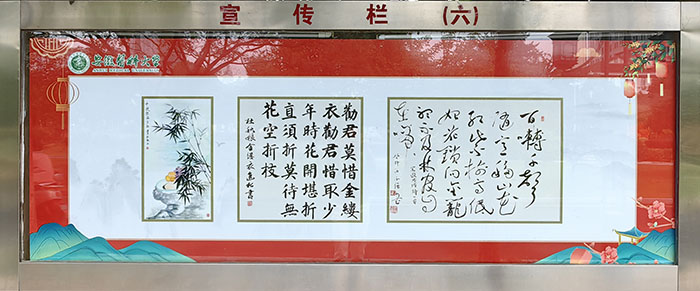 宣传栏(六)
安徽醫科大學
ANHUI MEDICAL UNIVERSITY
勸君莫惜金縷
衣勸君惜取少
年時花開堪折
直須折莫待無
花空折枝
百囀千聲
隨意移山花
紅紫樹高低
始知鎖向金籠
聽不及林間自
在啼